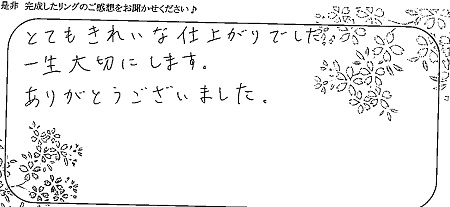 是非 完成したリングのご感想をお聞かせください♪
とてもきれいな仕上がりでした。
一生大切にします。
ありがとうございました。